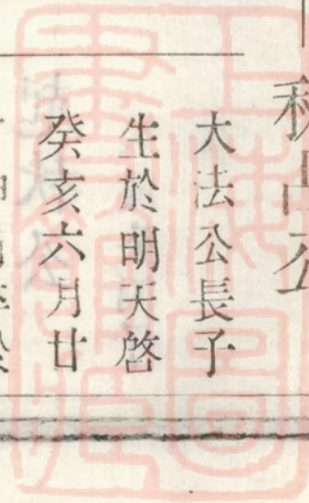 秋山公
大法公長子
生於明天啓
癸亥六月廿